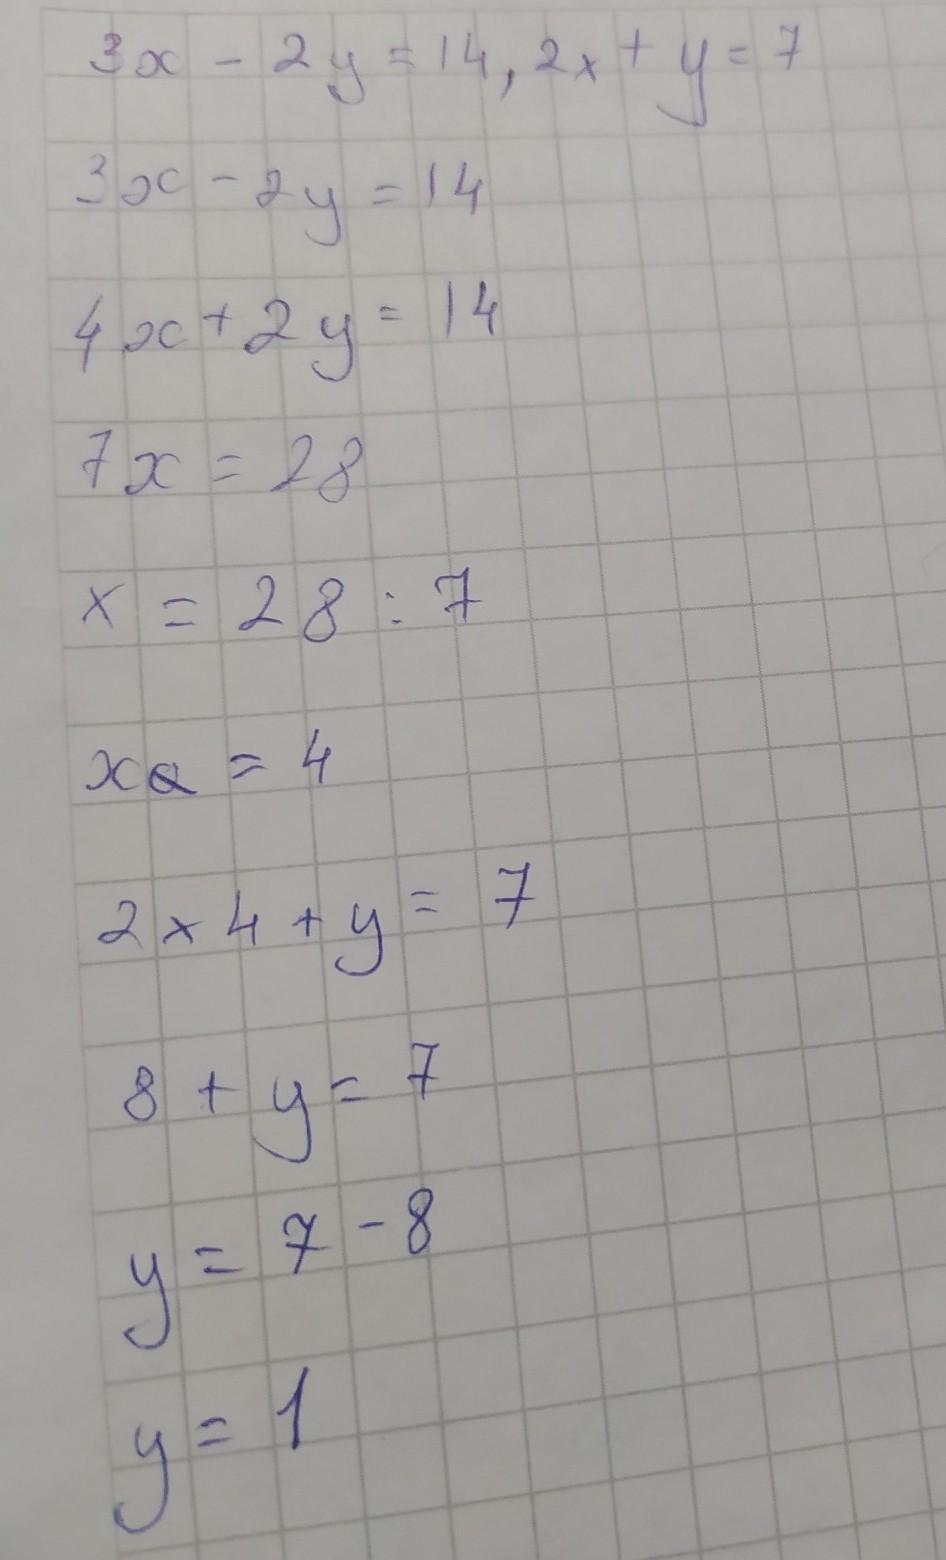 3x - 2y = 14, 2x + y = 7
3x - 2y = 14
4x + 2y = 14
7x = 28
x = 28 : 7
x = 4
2 × 4 + y = 7
8 + y = 7
y = 7 - 8
y = 1